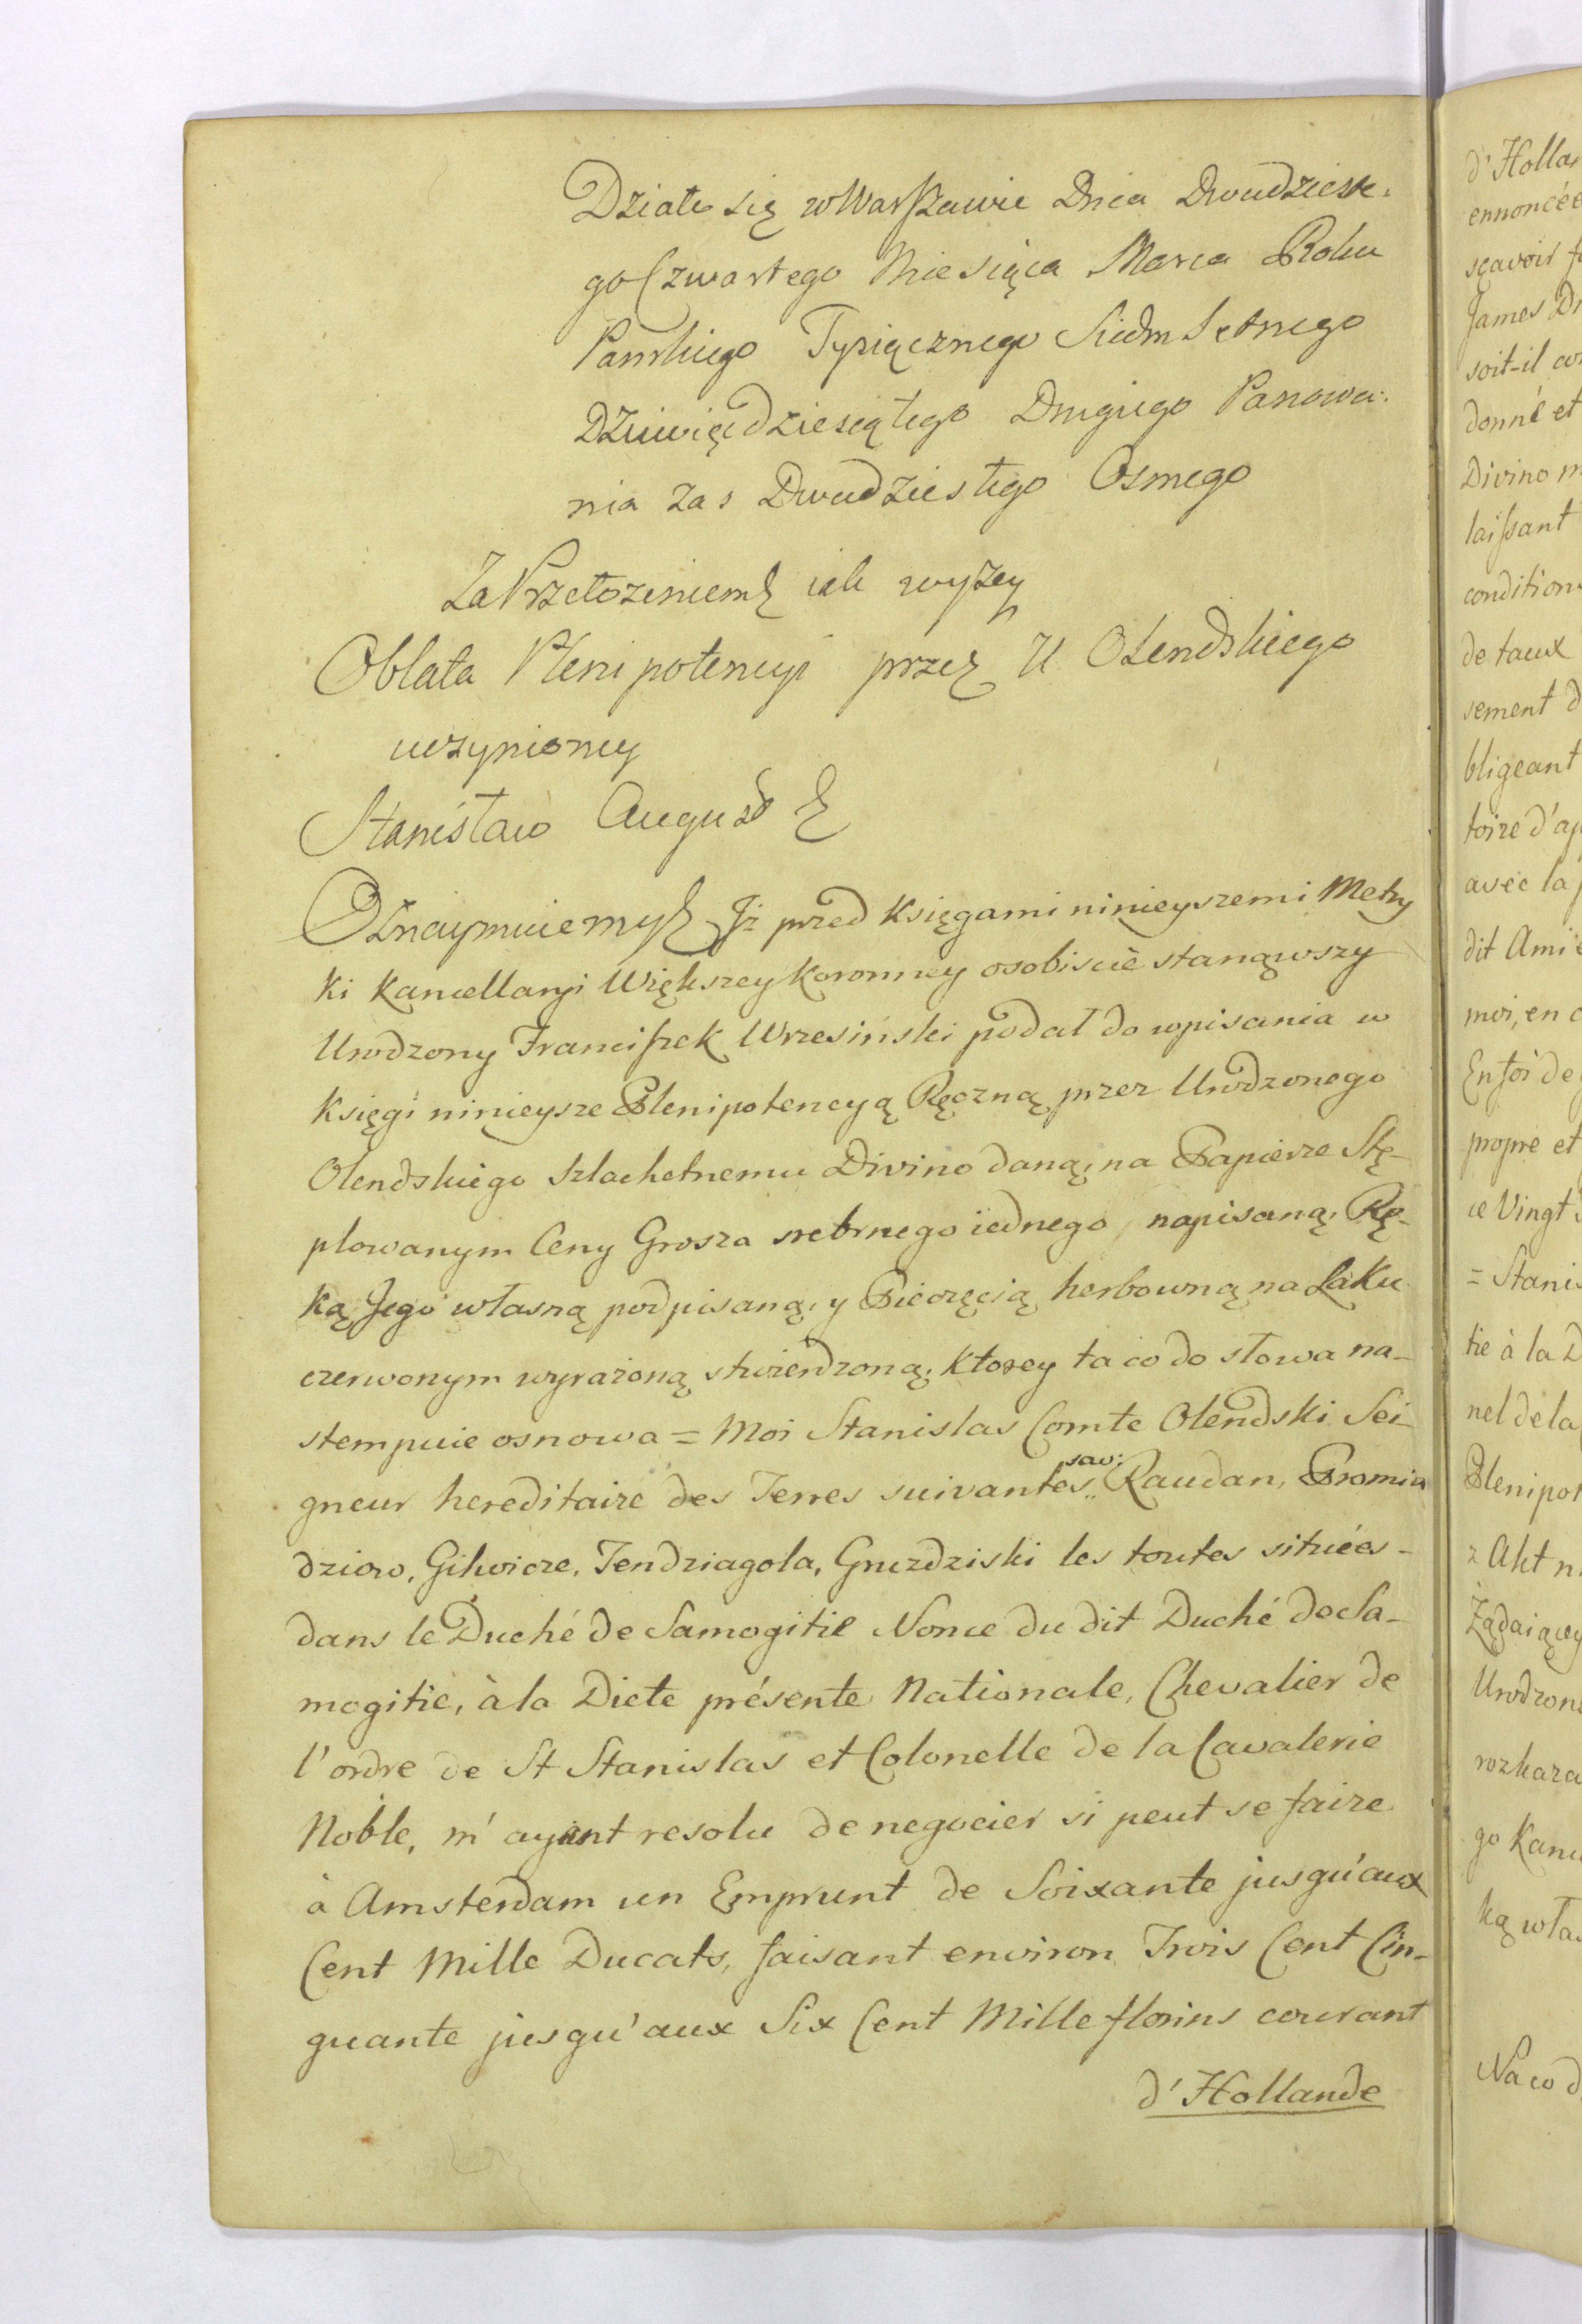 Działo się w Warszawie Dnia Dwudzieste-
go Czwartego Miesiąca Marca Roku
Pańskiego Tysiącznego Siedm Setnego
Dziewięćdziesiątego Drugiego Panowa-
nia zas Dwudziestego Osmego
Za Przełożeniem jak wyżey
Oblata Plenipotencyi przez U Olendskiego
uczynioney
Stanisław August
Oznaymuiemy Iż przed Księgami ninieyszemi Metry
ki Kancellaryi Większey Koronney osobiscie stanąwszy
Urodzony Franciszek Wrzesiński podał do wpisania w
Księgi ninieysze Plenipotencyą Ręczną przez Urodzonego
Olendskiego Szlachetnemu Divino daną, na Papierze Stę-
plowanym Ceny Grosza srebrnego iednego, napisaną, Rę-
ką Jego własną podpisaną, y Pieczęcią herbowną na Laku
czerwonym wyrażoną stwierdzoną, Ktorey ta co do słowa na-
stempuie osnowa = Moi Stanislas Comte Olendski Sei-
gneur hereditaire des Terres suivantes sav: Raudan, Promia
dziow, Gilwicze, Tendziagola, Gnezdziski les toutes situées-
dans le Duché de Samogitie Nonce du dit Duché de Sa-
mogitie, à la Diete présente Nationale, Chevalier de
l'ordre de St Stanislas et Colonelle de la Cavalerie
Noble, m'ayant resolu de negocier si peut se faire
à Amsterdam un Emprunt de Soixante jusqu'aux
Cent Mille Ducats, faisant environ Trois Cent Cin-
quante jusqu'aux Six Cent Mille florins courant
d'Hollande
d'Holla
ennoncée
sçavoir
James
soit-il
donné et
Divino
laissant
condition
de taux
sement d
bligeant
toire d'ap
avec la
dit Ami
moi, en
En foi de
propre et
ce Vingt
= Stanis
tie à la D
nel de la
Plenipot
z Akt
Żądaiącey
Urodzon
rozkaza
go Kanc
ką włas
Na co d